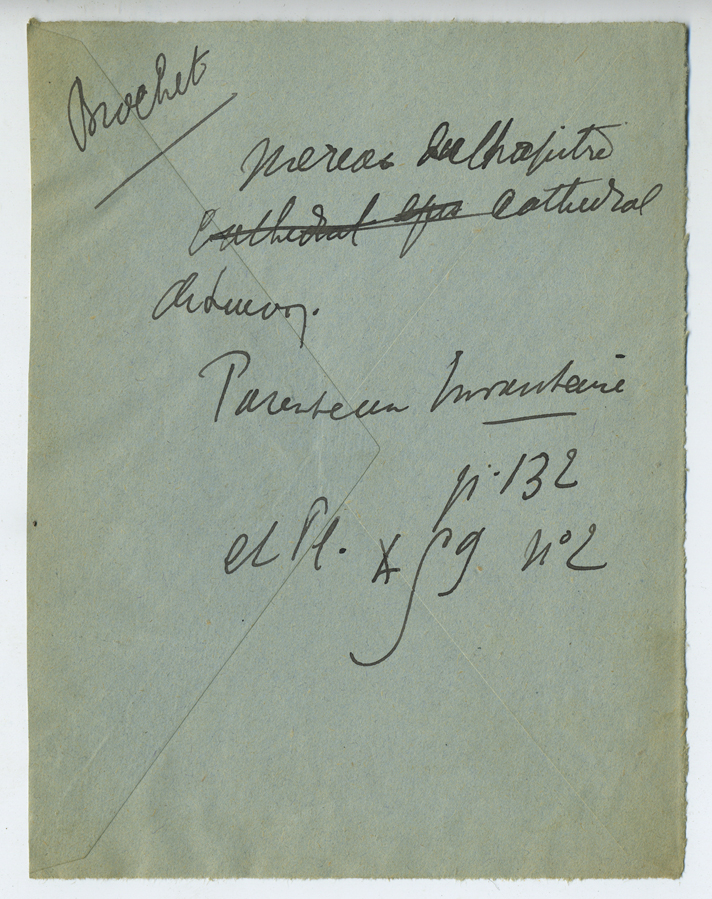 Brochet
mereau du Chapitre
Cathedral Cathedral
de Luçon.
Parenteau Inventaire
p. 132
et Pl. X fg nº 2